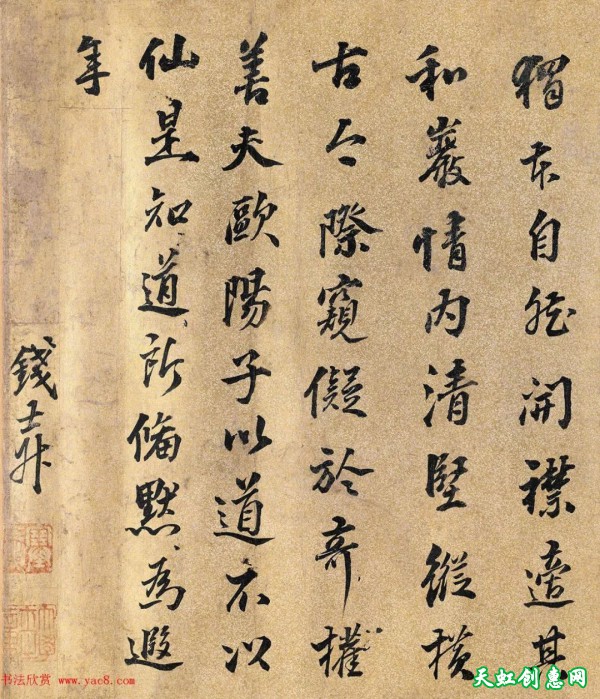 本自然開襟適其
和巖情内清堅縱横
古今際窺儗於奇權
善夫歐陽子以道不以
仙是知道所俻默為遐
年
錢士升
书法欣赏 www.yac8.com
天虹创惠网